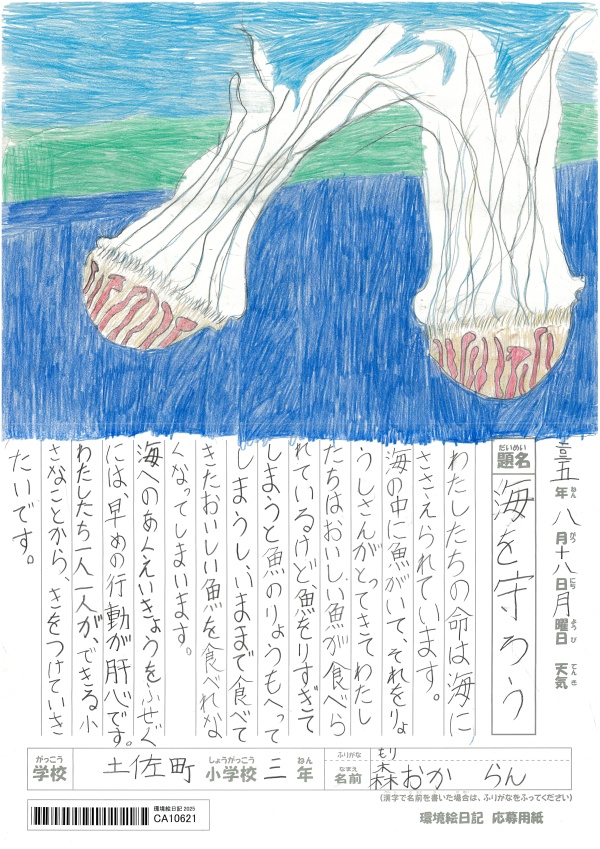 二〇二五年八月十八日月曜日 天気
ねん がつ にち ようび てんき
だいめい
題名 海を守ろう
わたしたちの命は海に
ささえられています。
海の中に魚がいて、それをりょ
うしさんがとってきてわたし
たちはおいしい魚が食べら
れているけど、魚をりすぎて
しまうと魚のりょうもへって
しまうし、いままで食べて
きたおいしい魚を食べれな
くなってしまいます。
海へのあくえいきょうをふせぐ
には、早めの行動が肝心です。
わたしたち一人一人が、できる小
さなことから、きをつけていき
たいです。
がっこう しょうがっこう ねん
学校 土佐町 小学校 三 年
ふりがな もり
なまえ
名前 森おか らん
(漢字で名前を書いた場合は、ふりがなをふってください)
環境絵日記 2025
CA10621
環境絵日記 応募用紙